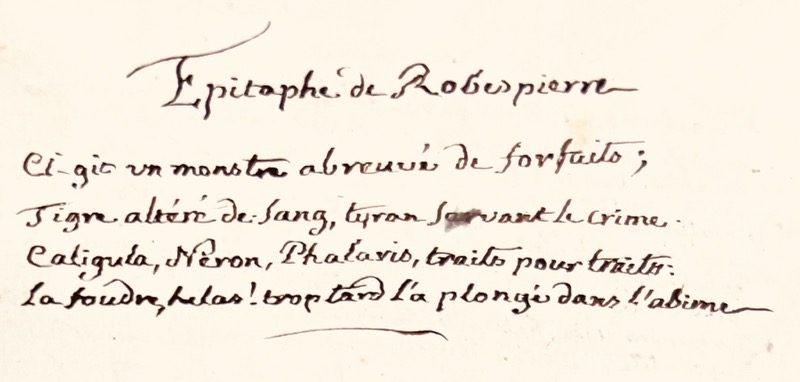 Epitaphe de Robespierre
Ci-git un monstre abreuvé de forfaits ;
Tigre altéré de sang, tyran savant le crime.
Caligula, Néron, Phalaris, traits pour traits:
la foudre, helas ! trop tard l'a plongé dans l'abime